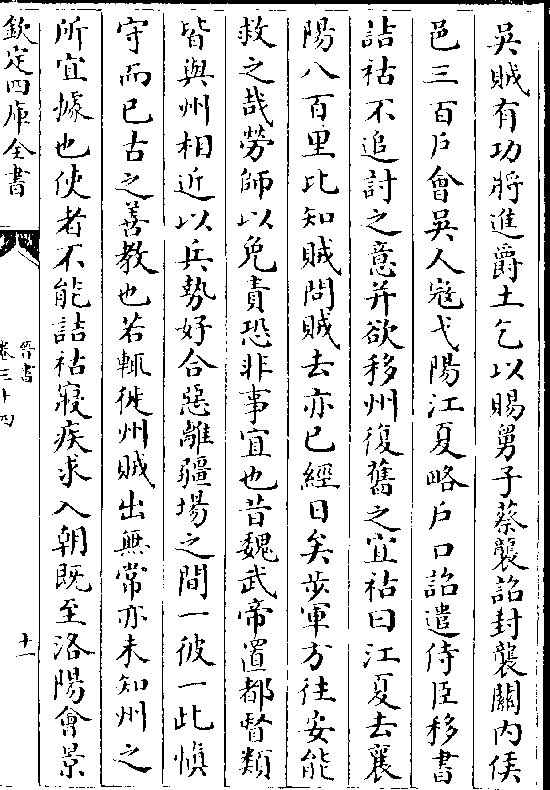 吳賊有功將進爵土乞以賜舅子蔡襲詔封襲關内侯
邑三百戶會吳人寇弋陽江夏略戶口詔遣侍臣移書
詰祜不追討之意并欲移州復舊之宜祜曰江夏去襄
陽八百里比知賊問賊去亦已經日矣步軍方往安能
救之哉勞師以免責恐非事宜也昔魏武帝置都督類
皆與州相近以兵勢好合惡離疆埸之間一彼一此慎
守而已古之善教也若輒徙州賊出無常亦未知州之
所宜據也使者不能詰祜寢疾求入朝既至洛陽會景
欽定四庫全書
晉書
卷三十四
十一